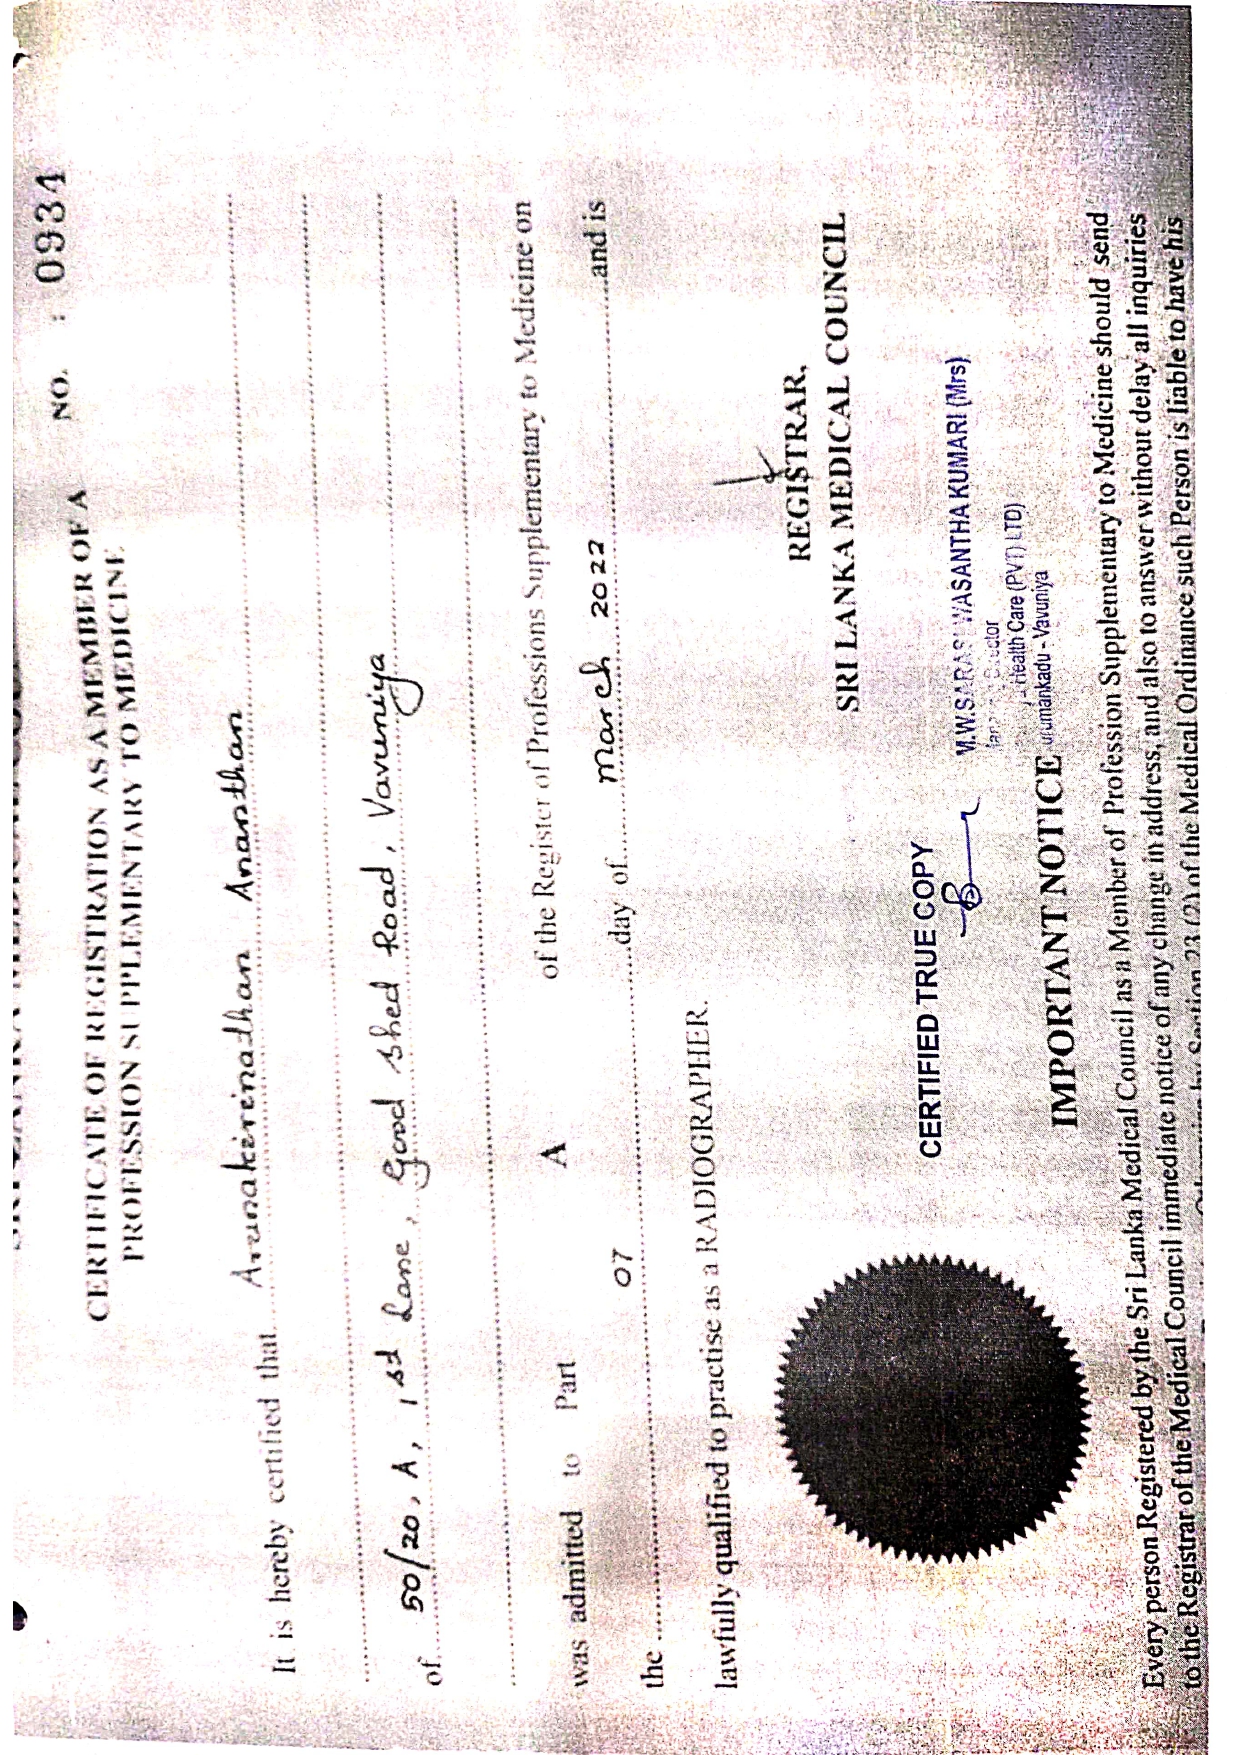 CERTIFICATE OF REGISTRATION AS A MEMBER OF A NO. : 0934
PROFESSION SUPPLEMENTARY TO MEDICINE
It is hereby certified that Arunakirinathan Ananthan
of 50/20, A, 1st Lane, Good Shed Road, Vavuniya
was admitted to Part A of the Register of Professions Supplementary to Medicine on
the 07 day of March 2022 and is
lawfully qualified to practise as a RADIOGRAPHER.
REGISTRAR,
SRI LANKA MEDICAL COUNCIL
CERTIFIED TRUE COPY
WASANTHA KUMARI (Mrs)
Health Care (PVT) LTD)
- Vavuniya
IMPORTANT NOTICE
Every person Registered by the Sri Lanka Medical Council as a Member of Profession Supplementary to Medicine should send
to the Registrar of the Medical Council immediate notice of any change in address, and also to answer without delay all inquiries
Section 23 (2) of the Medical Ordinance such Person is liable to have his